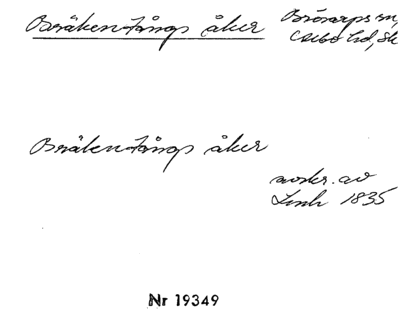 Bräkentångs åker
Brösarps sn,
Albo hd, Sk
Bräkentångs åker
avskr. av
Linh 1835
Nr 19349